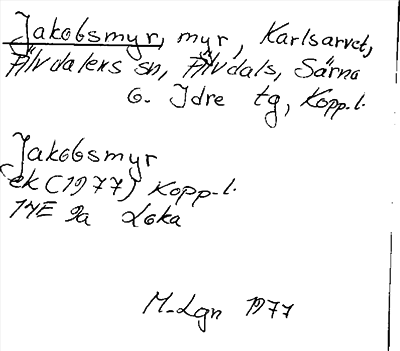 Jakobsmyr, myr, Karlsarvet,
Älvdalens sn, Älvdals, Särna
o. Idre tg, Kopp.l.
Jakobsmyr
ek (1977) Kopp.l.
14E 2a Loka
M. Lgn 1977